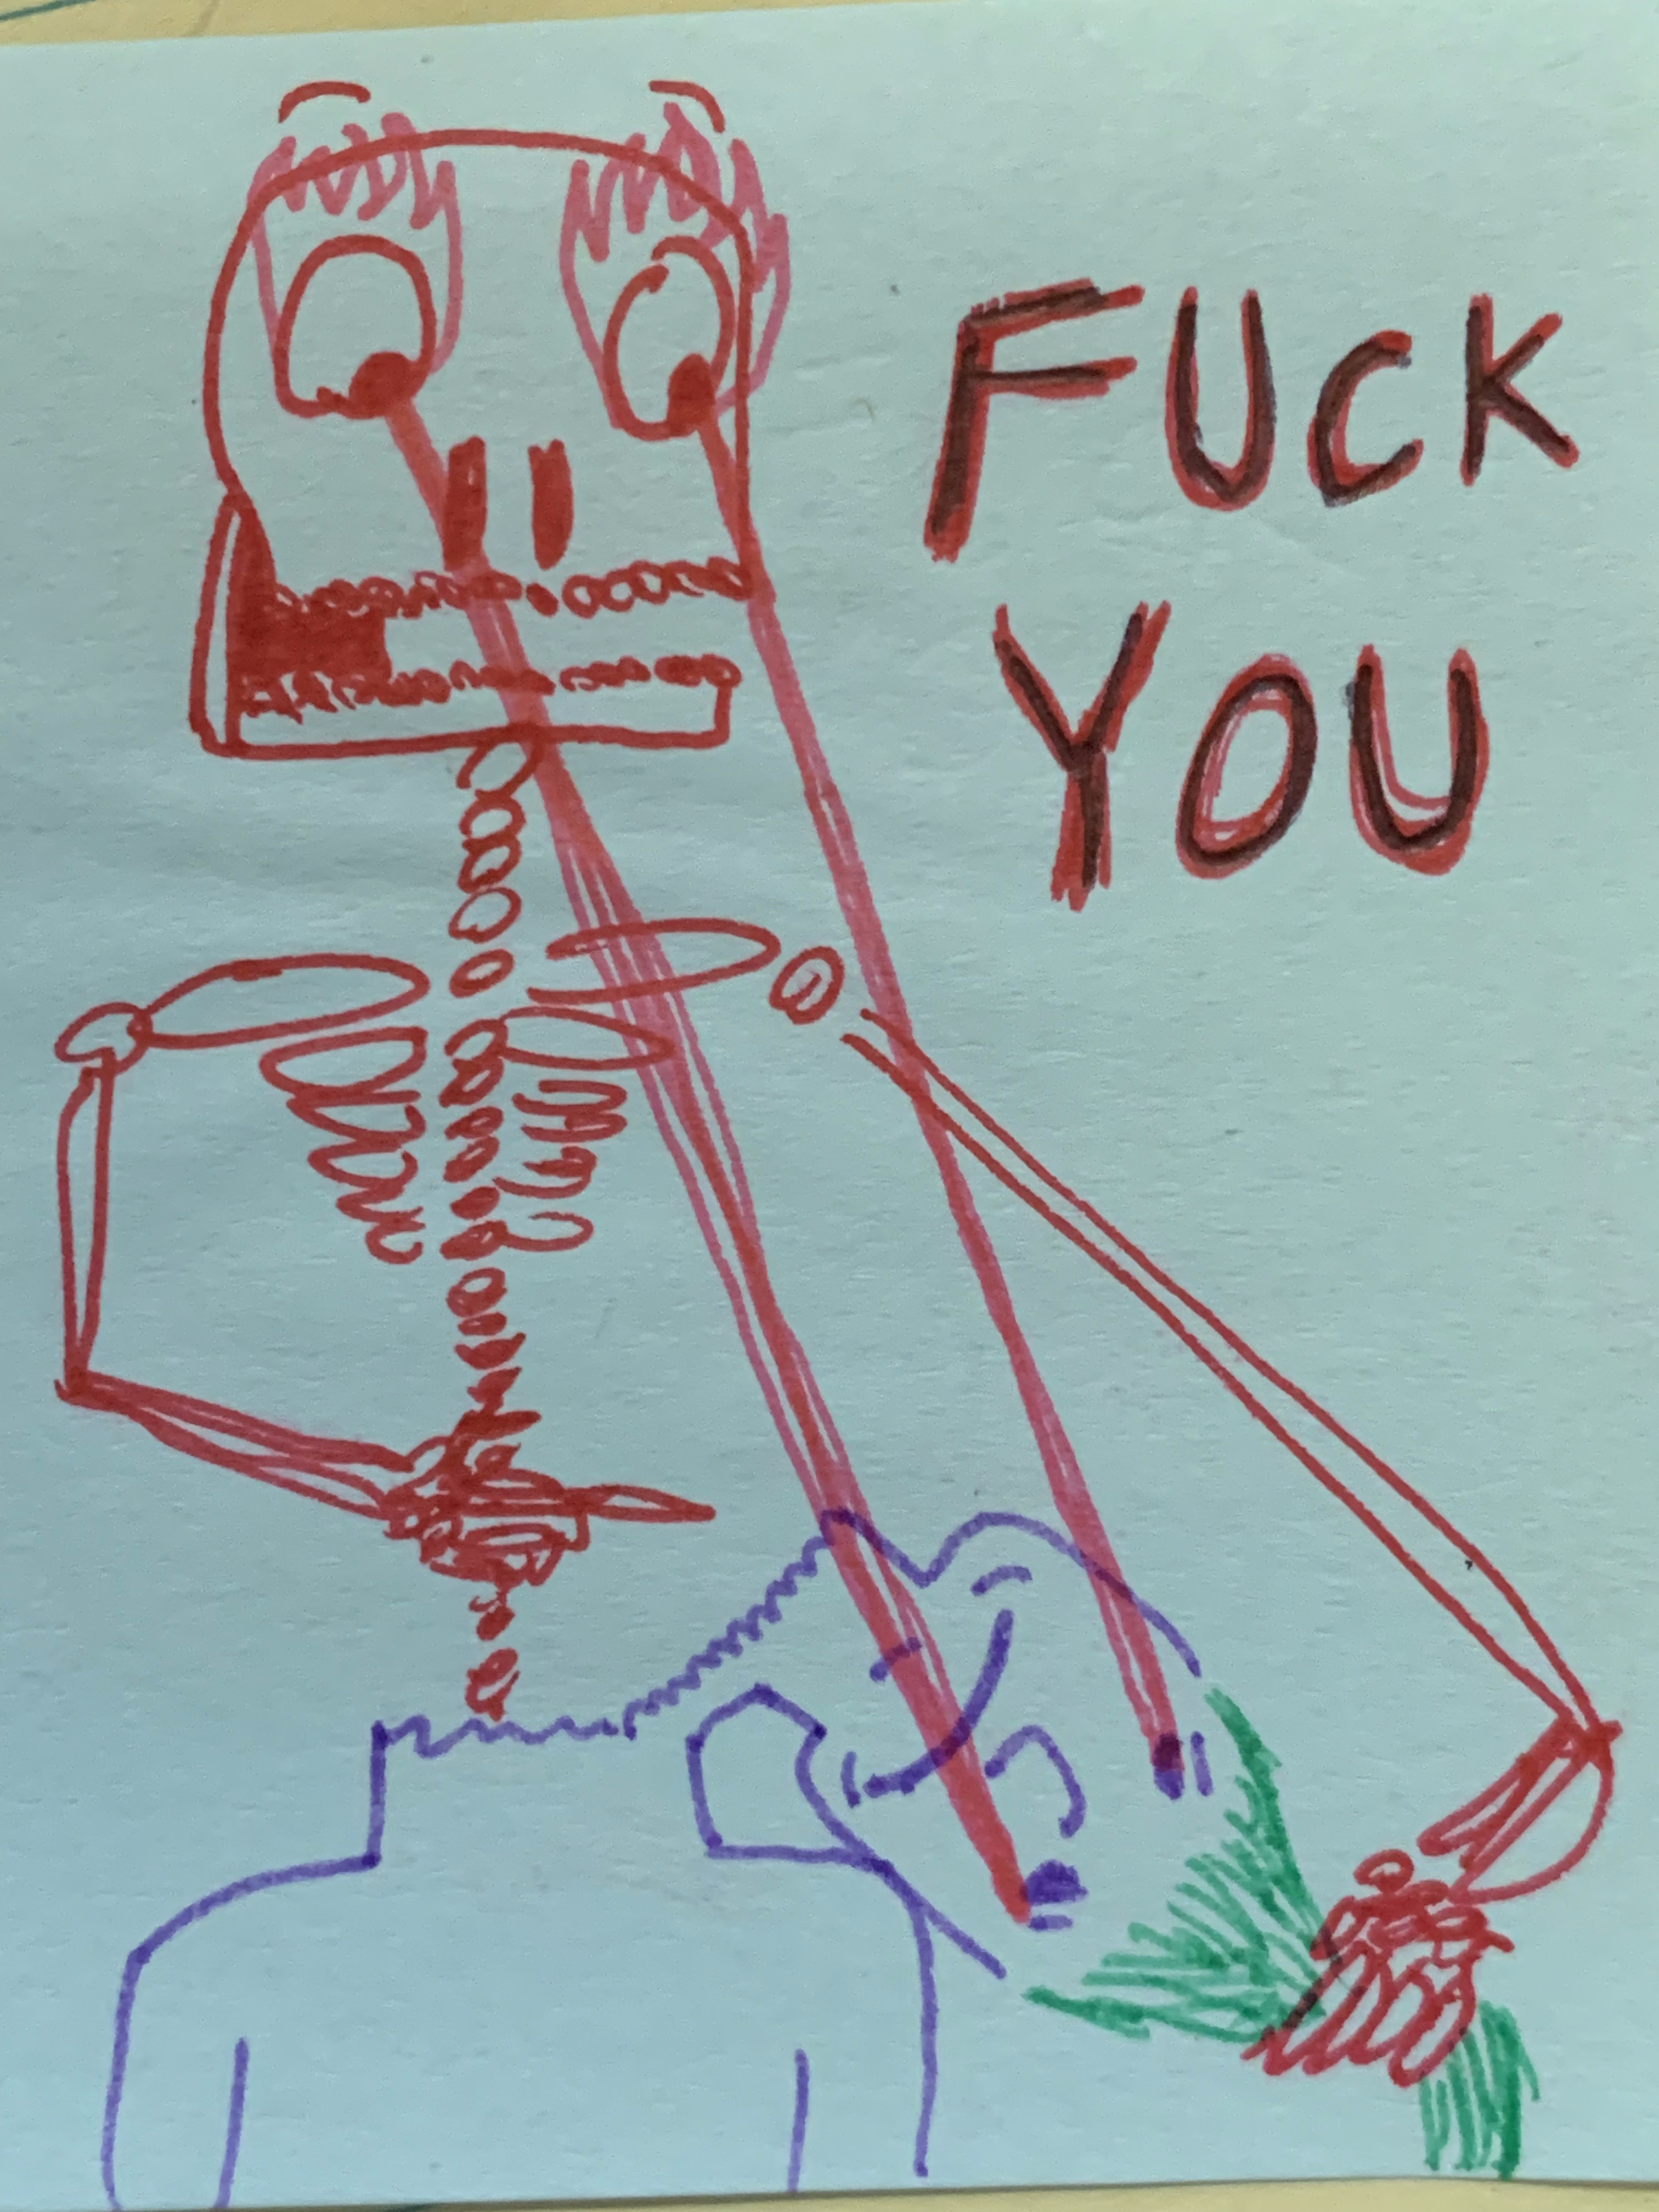 FUCK
YOU